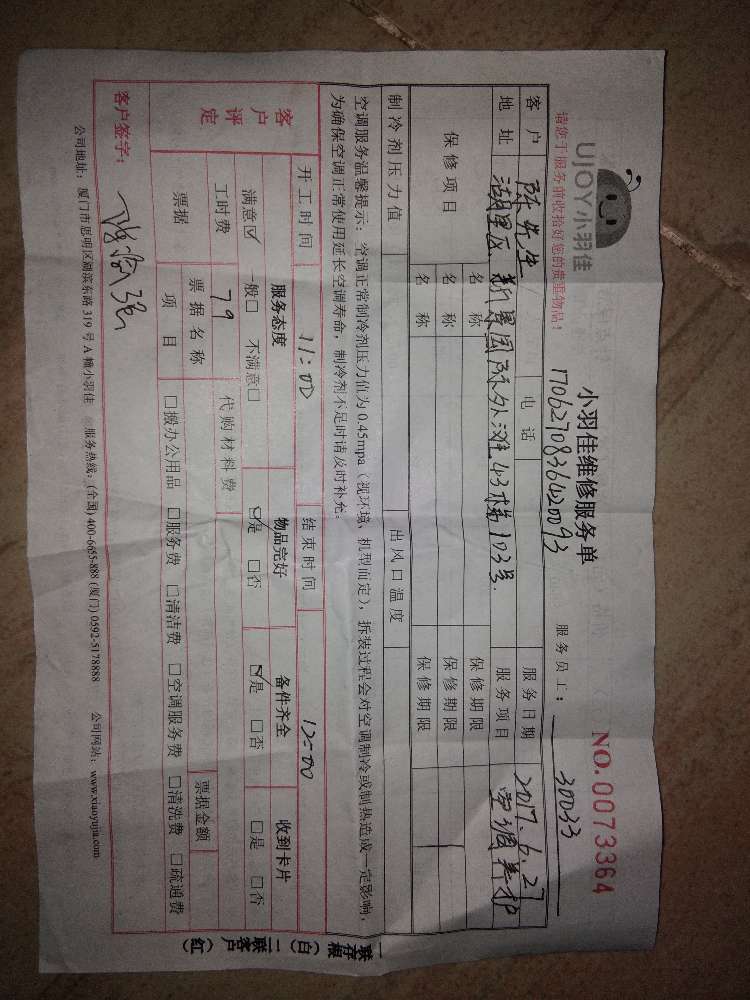 UJOY小羽佳
小羽佳维修服务单
NO.0073364
请您于服务前收拾好您的贵重物品！
1706270836420093
服务员工： 30033
客户 陈先生 电话 服务日期 2017.6.27
地址 湖里区 新景国际外滩43栋103号 服务项目 空调养护
保修项目 名称 保修期限
名称 保修期限
名称 保修期限
制冷剂压力值 出风口温度
空调服务温馨提示：空调正常制冷剂压力值为0.45mpa（视环境、机型而定），拆装过程会对空调制冷或制热造成一定影响，
为确保空调正常使用延长空调寿命，制冷剂不足时请及时补充。
开工时间 11:00 结束时间 12:00
客户评定 服务态度 物品完好 备件齐全 收到卡片
满意☑ 一般□ 不满意□ ☑是 □否 ☑是 □否 □是 □否
工时费 79 代购材料费
票据 票据名称 票据金额
项目 □搬办公用品 □服务费 □清洁费 □空调服务费 □清洗费 □疏通费
客户签字：
公司地址：厦门市思明区湖滨东路319号A幢小羽佳 服务热线：(全国) 400-6655-888 (厦门) 0592-5178888 公司网站：www.xiaoyujia.com
一联存根（白） 二联客户（红）